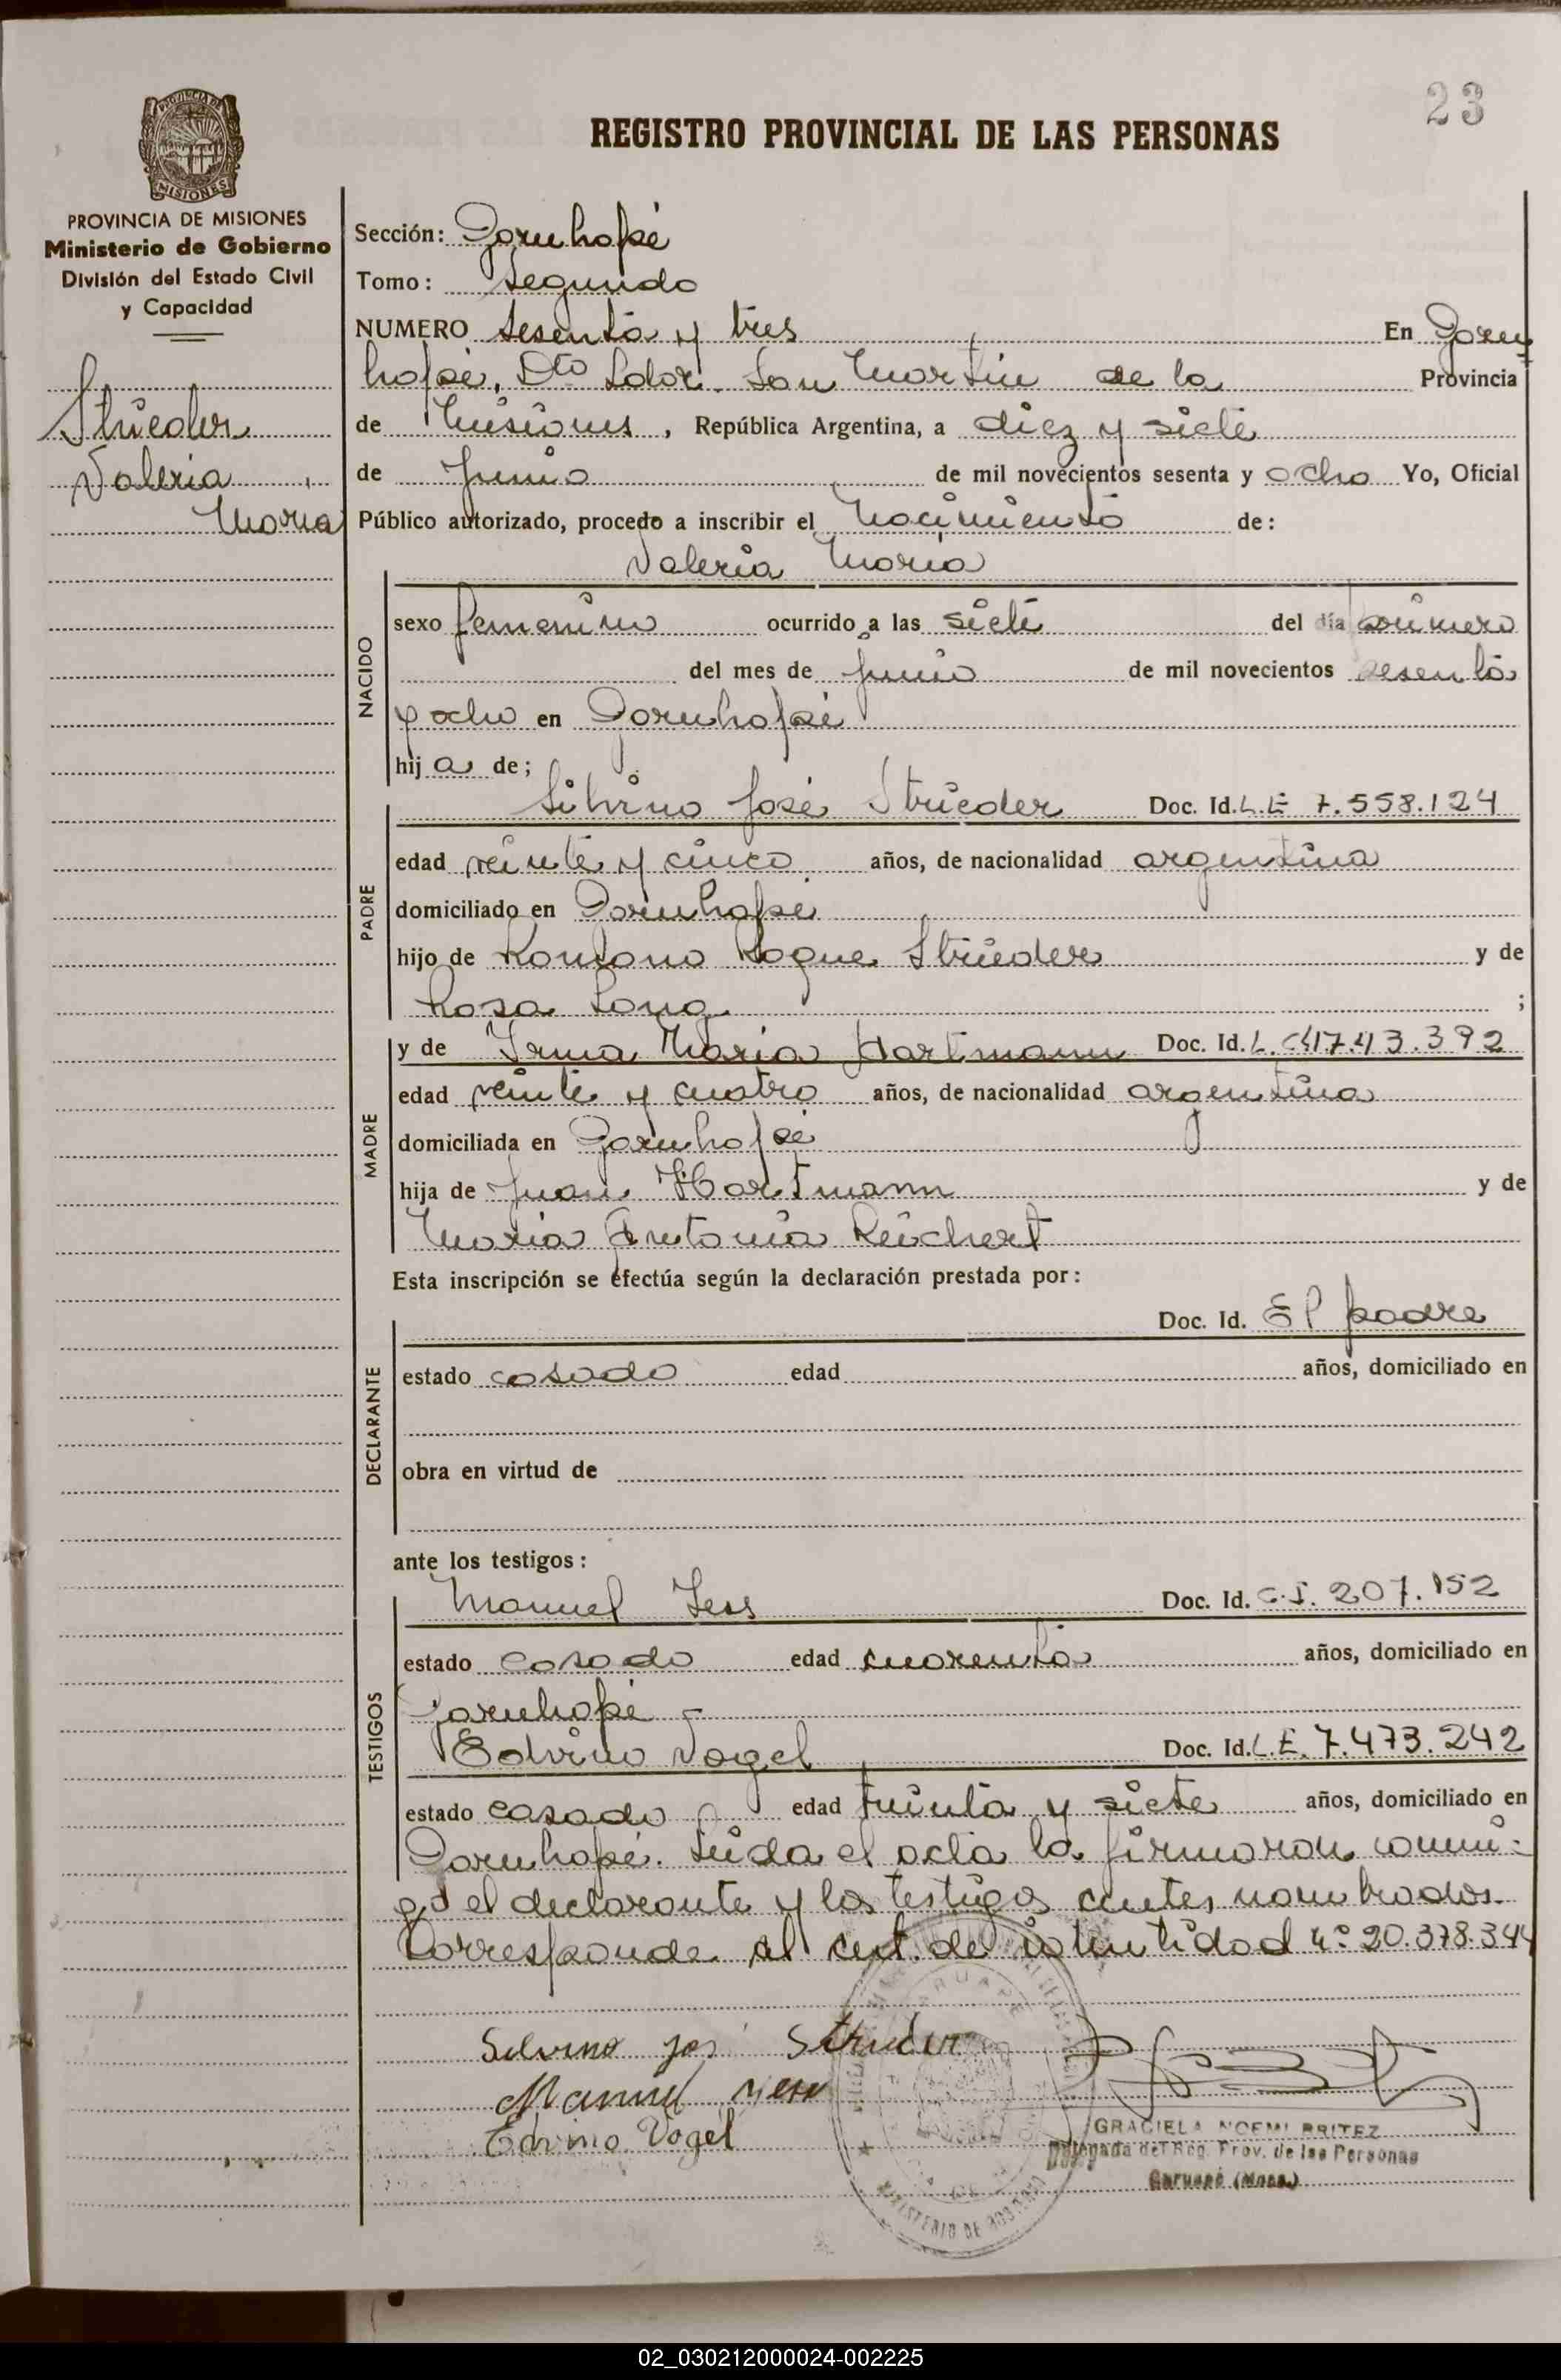 23
REGISTRO PROVINCIAL DE LAS PERSONAS
PROVINCIA DE MISIONES
Ministerio de Gobierno
División del Estado Civil
y Capacidad
Strieder
Valeria
Maria
Sección: Garuhapé
Tomo: Segundo
NUMERO sesenta y tres En Garu
hapé, Dto Ldor. San Martin de la Provincia
de Misiones, República Argentina, a diez y siete
de Junio de mil novecientos sesenta y ocho Yo, Oficial
Público autorizado, procedo a inscribir el Nacimiento de:
Valeria Maria
NACIDO
sexo femenino ocurrido a las siete del día primero
del mes de junio de mil novecientos sesenta
y ocho en Garuhapé
hija de;
PADRE
Silvino José Strieder Doc. Id. L.E 7.558.124
edad veinte y cinco años, de nacionalidad argentina
domiciliado en Garuhapé
hijo de Romano Roque Strieder y de
Rosa Lang ;
MADRE
y de Irma Maria Hartmann Doc. Id. L.C
edad veinte y cuatro años, de nacionalidad argentina
domiciliada en Garuhapé
hija de Juan Hartmann y de
Maria Antonia Reichert
Esta inscripción se efectúa según la declaración prestada por:
DECLARANTE
Doc. Id. El padre
estado casado edad años, domiciliado en
obra en virtud de
ante los testigos:
TESTIGOS
Manuel Doc. Id. C.I. 207.152
estado casado edad cuarenta años, domiciliado en
Garuhapé -
Edvino Vogel Doc. Id. L.E. 7.473.242
estado casado edad treinta y siete años, domiciliado en
Garuhapé. Leida el acta la firmaron conmi-
go el declarante y los testigos antes nombrados.
Corresponde al cert. de identidad n° 20.378.344
Silvino José Strieder
Manuel
Edvino Vogel
GRACIELA NOEMI BRITEZ
Delegada del Reg. Prov. de las Personas
Garuapé (Mnes.)
MINISTERIO DE GOBIERNO
02_030212000024-002225